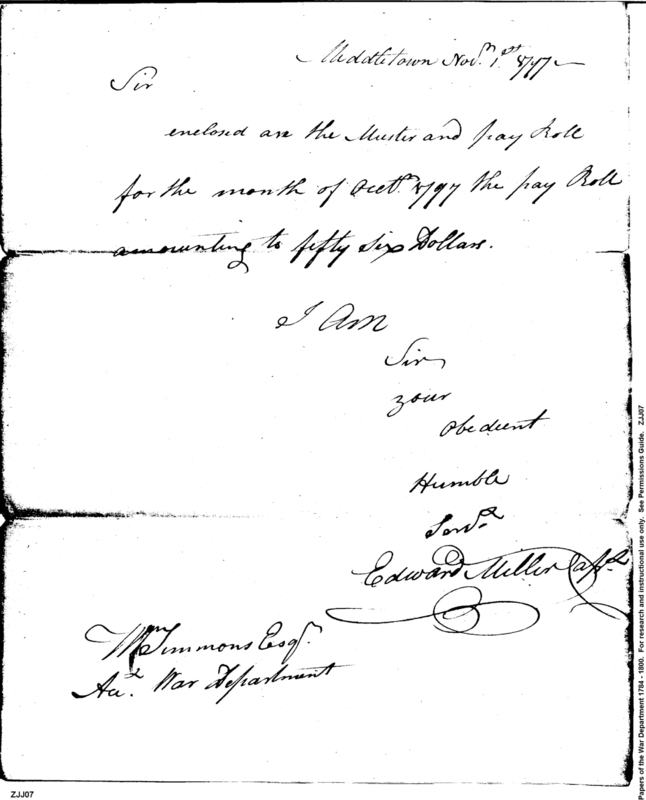 Middletown Novr. 1st 1797
Sir
enclosed are the Muster and pay Roll
for the month of Octr. 1797 the pay Roll
amounting to fifty six Dollars.
I Am
Sir
your
Obedient
Humble
Servt
Edward Miller Capt
Wm Simmons Esqr.
Act. War Department
Papers of the War Department 1784 - 1800. For research and instructional use only. See Permissions Guide. ZJJ07
ZJJ07